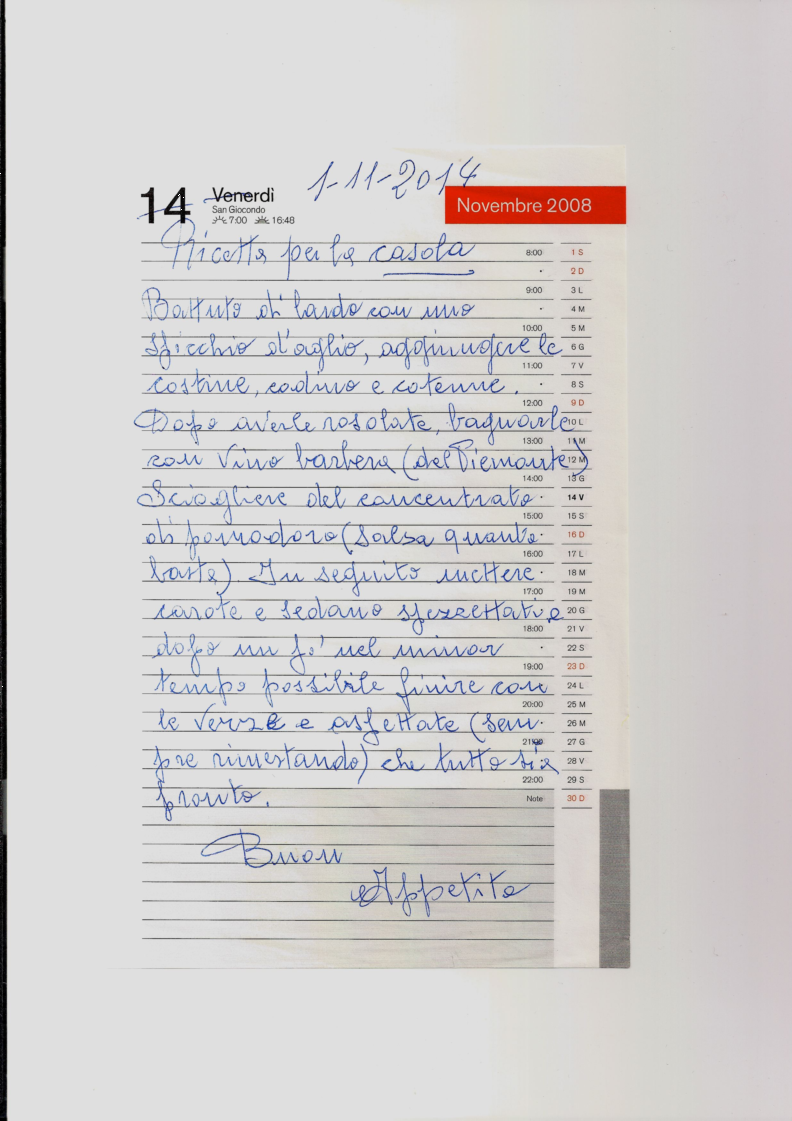 1-11-2014
14 Venerdì
San Giocondo
7:00 16:48
Novembre 2008
Ricetta per la casola
Battuto di lardo con uno
spicchio d'aglio, aggiungere le
costine, codino e cotenne.
Dopo averle rosolate, bagnarle
con vino barbera (del Piemonte)
Sciogliere del concentrato
di pomodoro (salsa quanto
basta). In seguito mettere
carote e sedano spezzettati, e
dopo un po' nel minor
tempo possibile finire con
le verze e aspettate (sem-
pre rimestando) che tutto sia
pronto.
Buon
Appetito
8:00
9:00
10:00
11:00
12:00
13:00
14:00
15:00
16:00
17:00
18:00
19:00
20:00
21:00
22:00
Note
1 S
2 D
3 L
4 M
5 M
6 G
7 V
8 S
9 D
10 L
11 M
12 M
13 G
14 V
15 S
16 D
17 L
18 M
19 M
20 G
21 V
22 S
23 D
24 L
25 M
26 M
27 G
28 V
29 S
30 D